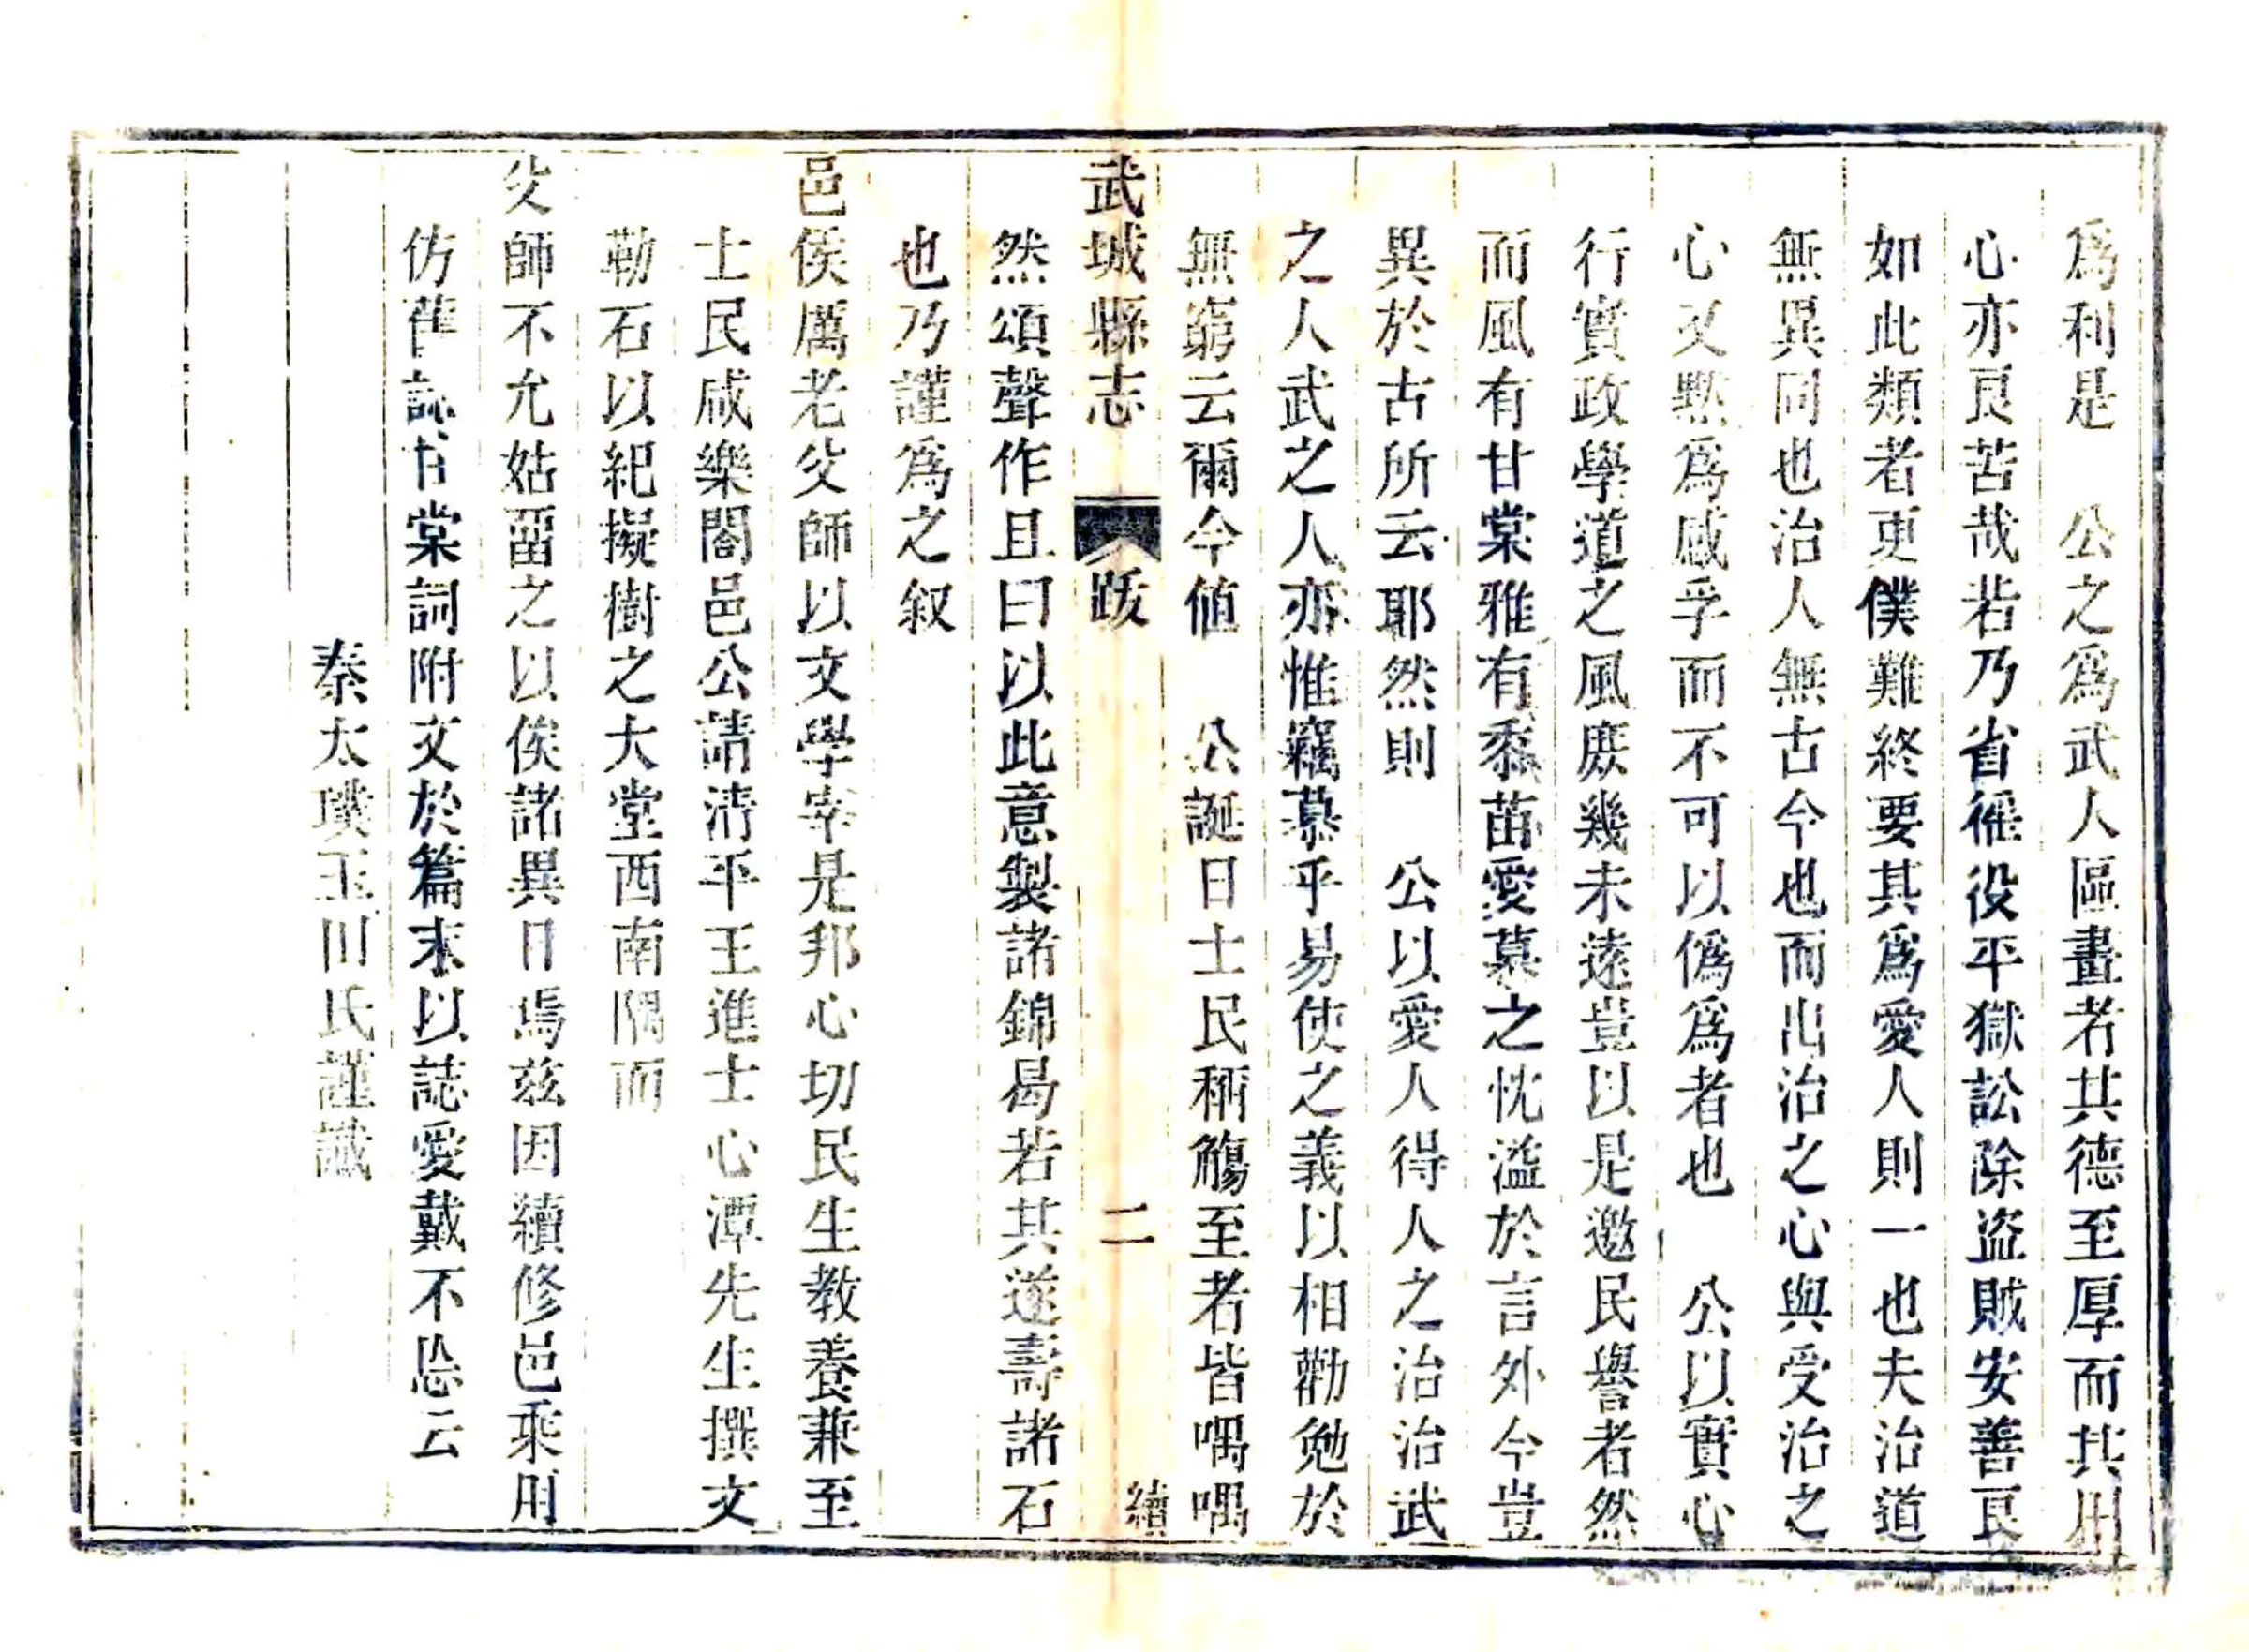 爲利是　公之爲武人區畫者其德至厚而其用
心亦良苦哉若乃省徭役平獄訟除盜賊安善良
如此類者更僕難終要其爲愛人則一也夫治道
無異同也治人無古今也而出治之心與受治之
心又默爲感孚而不可以僞爲者也　公以實心
行實政學道之風庶幾未遠豈以是邀民譽者然
而風有甘棠雅有黍苗愛慕之忱溢於言外今豈
異於古所云耶然則　公以愛人得人之治治武
之人武之人亦惟竊慕乎易使之義以相勸勉於
無窮云爾今値　公誕日士民稱觴至者皆喁喁
武城縣志　跋　二　續
然頌聲作且曰以此意製諸錦曷若其遂壽諸石
也乃謹爲之叙
邑侯厲老父師以文學宰是邦心切民生教養兼至
士民咸樂閤邑公請淸平王進士心潭先生撰文
勒石以紀擬樹之大堂西南隅而
父師不允姑畱之以俟諸異日焉玆因續修邑乘用
仿舊誌甘棠詞附文於篇末以誌愛戴不忘云
秦太璞玉田氏謹識